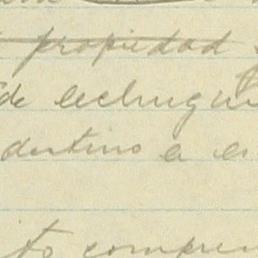 propiedad
de lechugui
destino a es
to compren